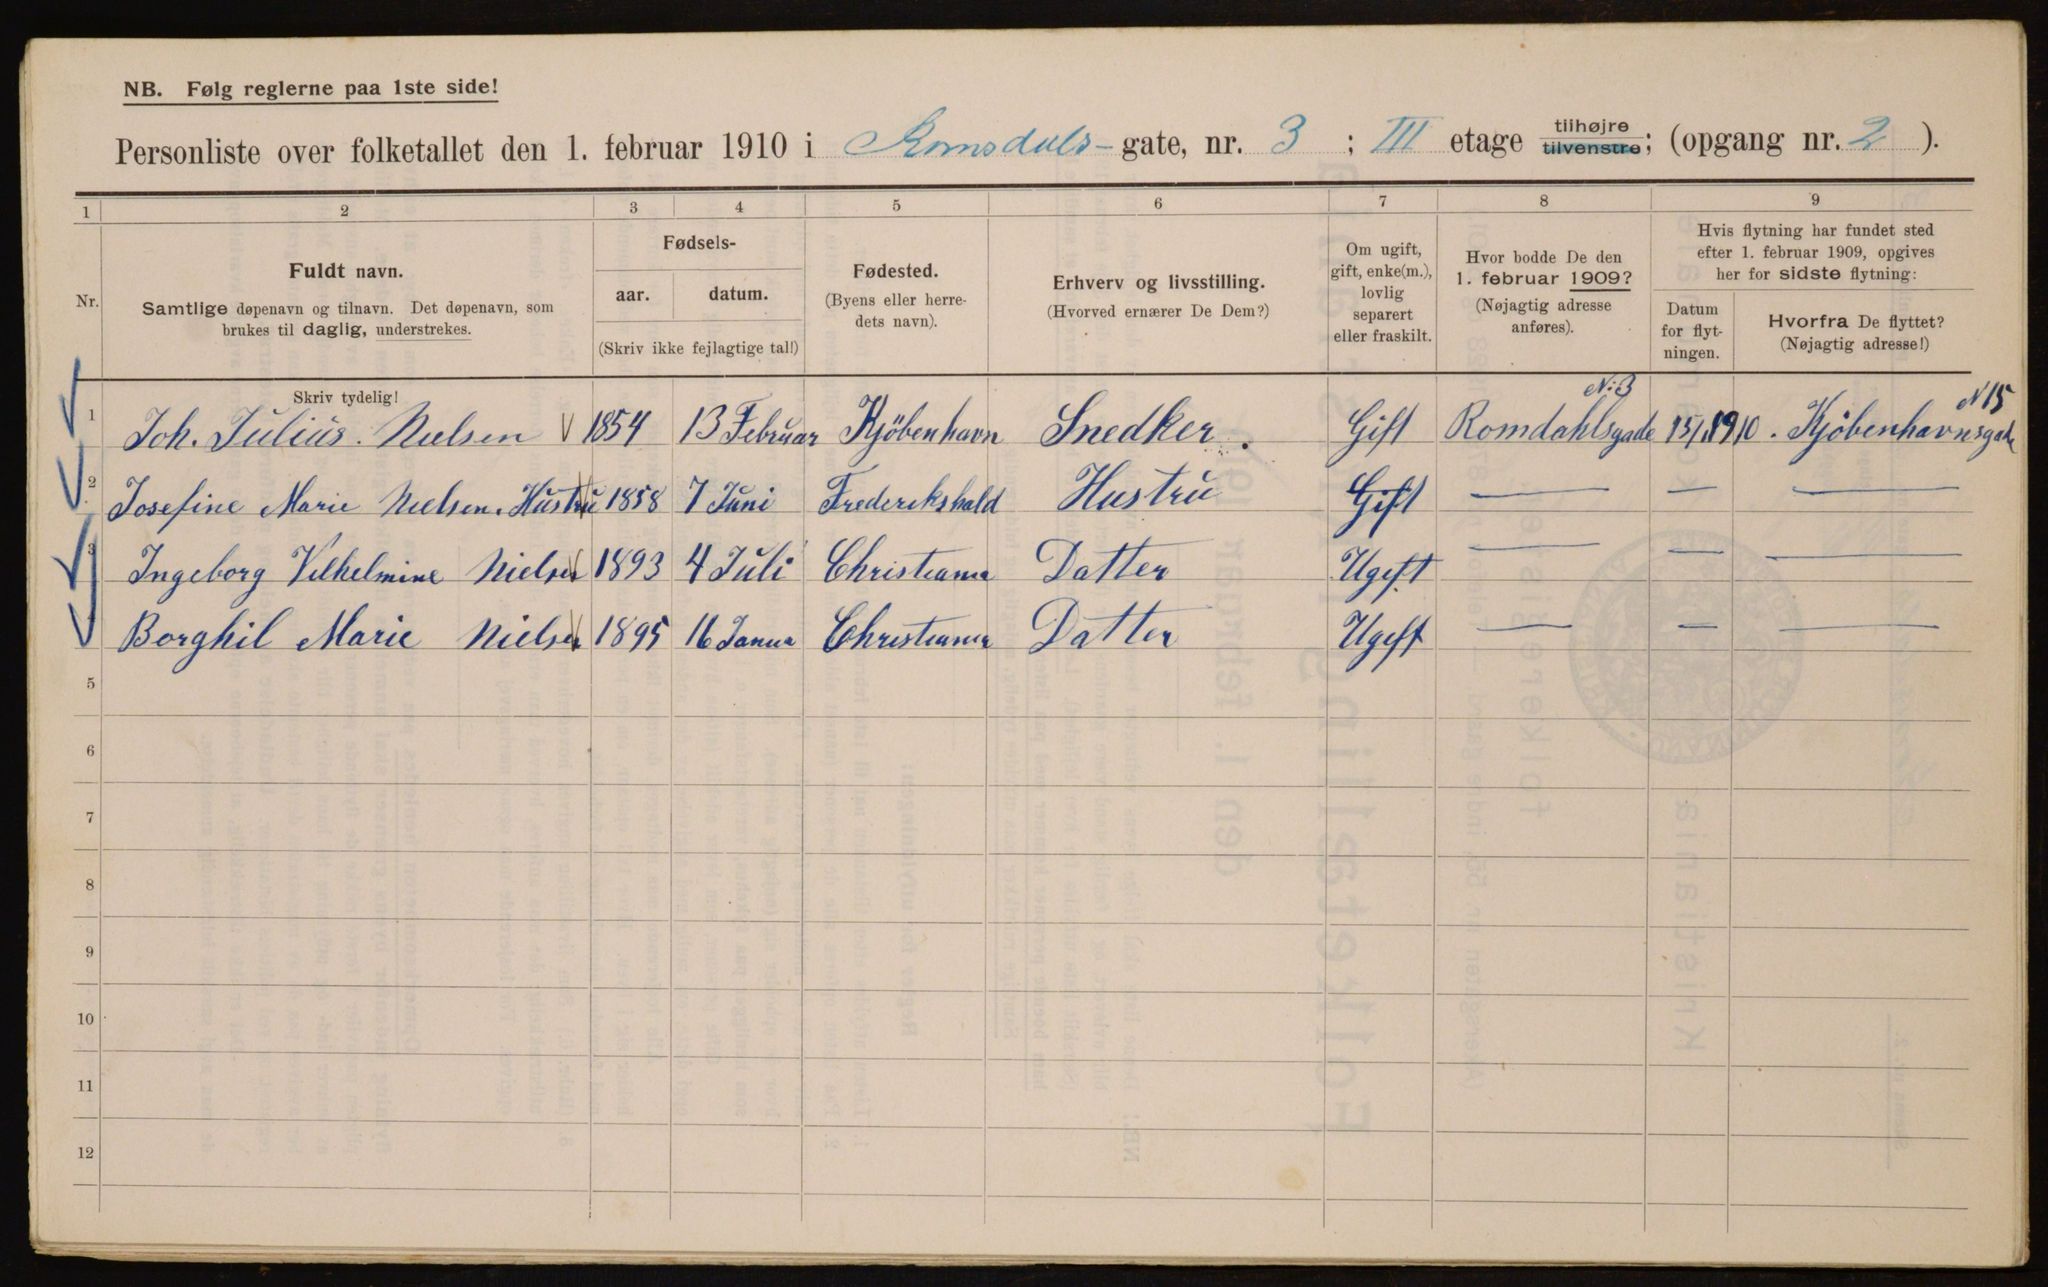 NB. Følg reglerne paa 1ste side!
Personliste over folketallet den 1. februar 1910 i Romsdals-gate, nr. 3 ; III etage tilhøjre tilvenstre; (opgang nr. 2 ).
1 2 3 4 5 6 7 8 9
Nr.
Fuldt navn.
Samtlige døpenavn og tilnavn. Det døpenavn, som
brukes til daglig, understrekes.
Fødsels-
aar. datum.
(Skriv ikke fejlagtige tal!)
Fødested.
(Byens eller herre-
dets navn).
Erhverv og livsstilling.
(Hvorved ernærer De Dem?)
Om ugift,
gift, enke(m.),
lovlig
separert
eller fraskilt.
Hvor bodde De den
1. februar 1909?
(Nøjagtig adresse
anføres).
Hvis flytning har fundet sted
efter 1. februar 1909, opgives
her for sidste flytning:
Datum
for flyt-
ningen.
Hvorfra De flyttet?
(Nøjagtig adresse!)
Skriv tydelig!
1 Joh. Julius. Nielsen 1854 13 Februar Kjöbenhavn Snedker. Gift Romdahlsgade N:3 15/1 1910. Kjöbenhavnsgade N 15
2 Josefine Marie Nielsen. Hustru 1858 7 Juni Frederikshald Hustru Gift — — —
3 Ingeborg Vilhelmine Nielsen 1893 4 Juli Christiania Datter Ugift — — —
Borghil Marie Nielsen 1895 16 Janua Christiania Datter Ugift — — —
5
6
7
8
9
10
11
12